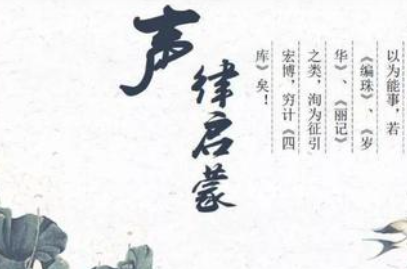 以为能事，若
《编珠》、《岁
华》、《丽记》
之类，洵为征引
宏博，穷计《四
库》矣！
声律启蒙